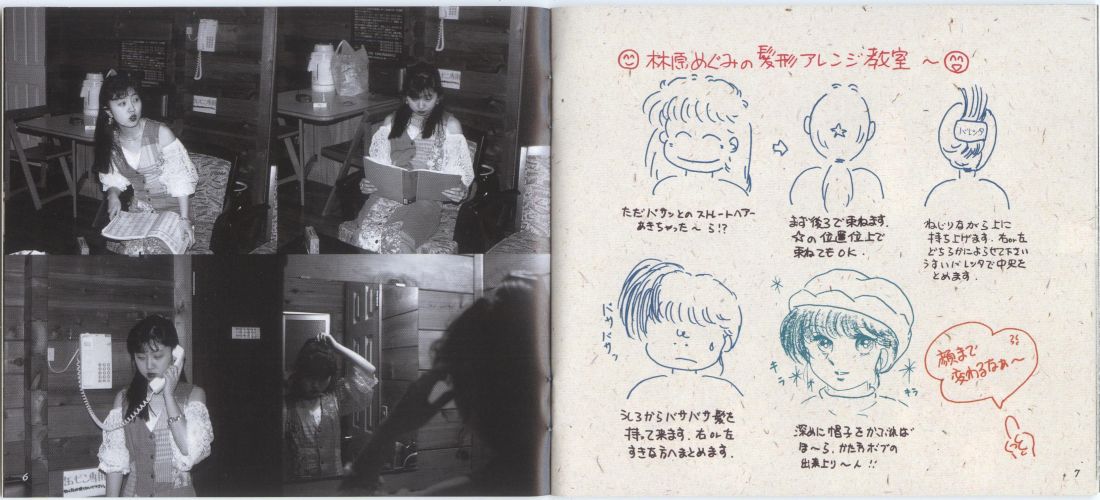 缶・ビン専用
缶・ビン専用
6
林原めぐみの髪形アレンジ教室〜
ただバサンとのストレートヘアー
あきちゃった〜ら!?
まず後ろで束ねます.
☆の位置位上で
束ねてもOK.
バレッタ
ねじりながら上に
持ち上げます.右or左
どちらかによらせて下さい
うすいバレッタで中央を
とめます.
バサバサッ
うしろからバサバサ髪を
持って来ます.右or左
すきな方へまとめます.
キラ
キラ
深めに帽子をかぶれば
ほ〜ら.かたちボブの
出来上り〜ん!!
顔まで
変わるなぁ〜
7